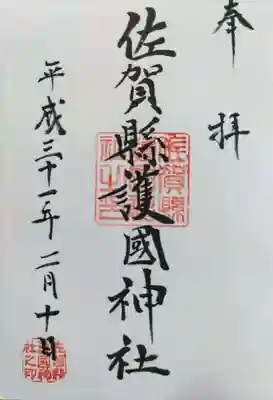 奉拝
佐賀縣護國神社
平成三十一年二月十日